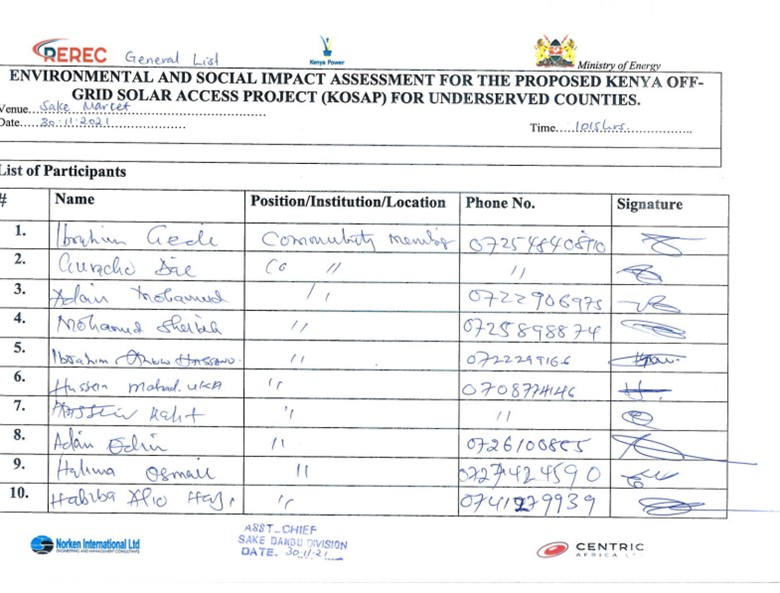 REREC General List Kenya Power Ministry of Energy
ENVIRONMENTAL AND SOCIAL IMPACT ASSESSMENT FOR THE PROPOSED KENYA OFF-
GRID SOLAR ACCESS PROJECT (KOSAP) FOR UNDERSERVED COUNTIES.
Venue...Sake Market
Date...30.11.2021 Time....1015hrs.
List of Participants
# Name Position/Institution/Location Phone No. Signature
1. Ibrahim Gede Community member
2. Guracho "
3. Adan Mohamed " 0722906975
4. Mohamed Sheikh " 0725898874
5. Ibrahim "
6. Hassan Mahad. UKA "
7. " "
8. Adan Edin "
9. Halima Osman " 0727424590
10. Habiba Alio Haji "  0741279939
Norken International Ltd
ENGINEERING AND MANAGEMENT CONSULTANTS
ASST-CHIEF
SAKE DANDU DIVISION
DATE. 30/11/21
CENTRIC
AFRICA LTD